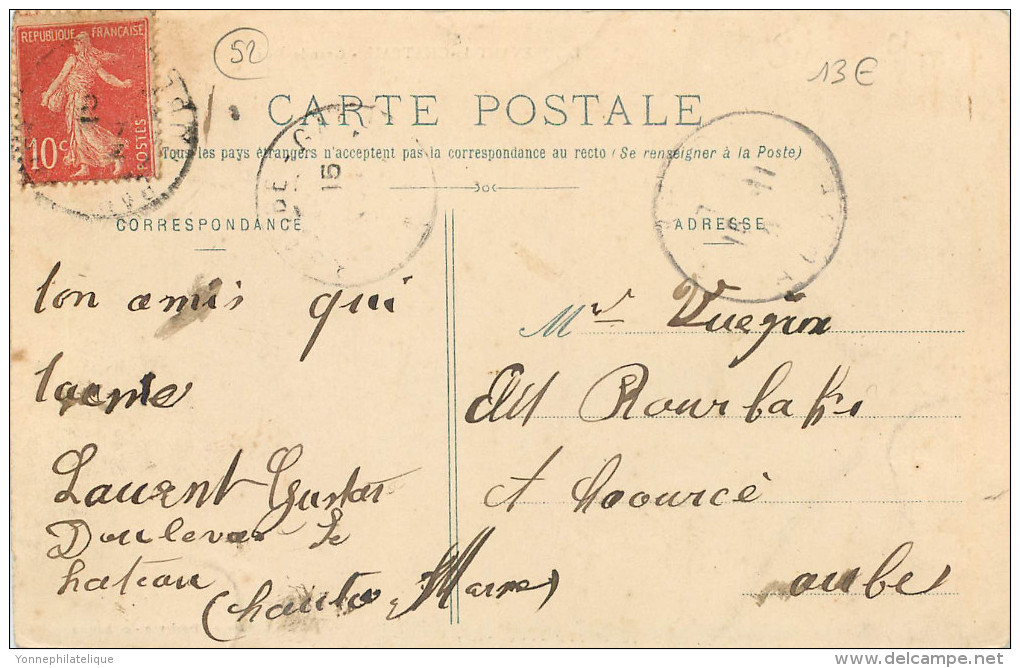 RÉPUBLIQUE FRANÇAISE
10c
POSTES
52
13€
CARTE POSTALE
Tous les pays étrangers n'acceptent pas la correspondance au recto (Se renseigner à la Poste)
CORRESPONDANCE
ton amis qui
t'aeme
Laurent Gustav
Doulevan le
hateau
(haute Marne)
ADRESSE
Mr Vuegion
dit Bourbaki
A haource
aube
15
Yonnephilatelique
delcampe.net